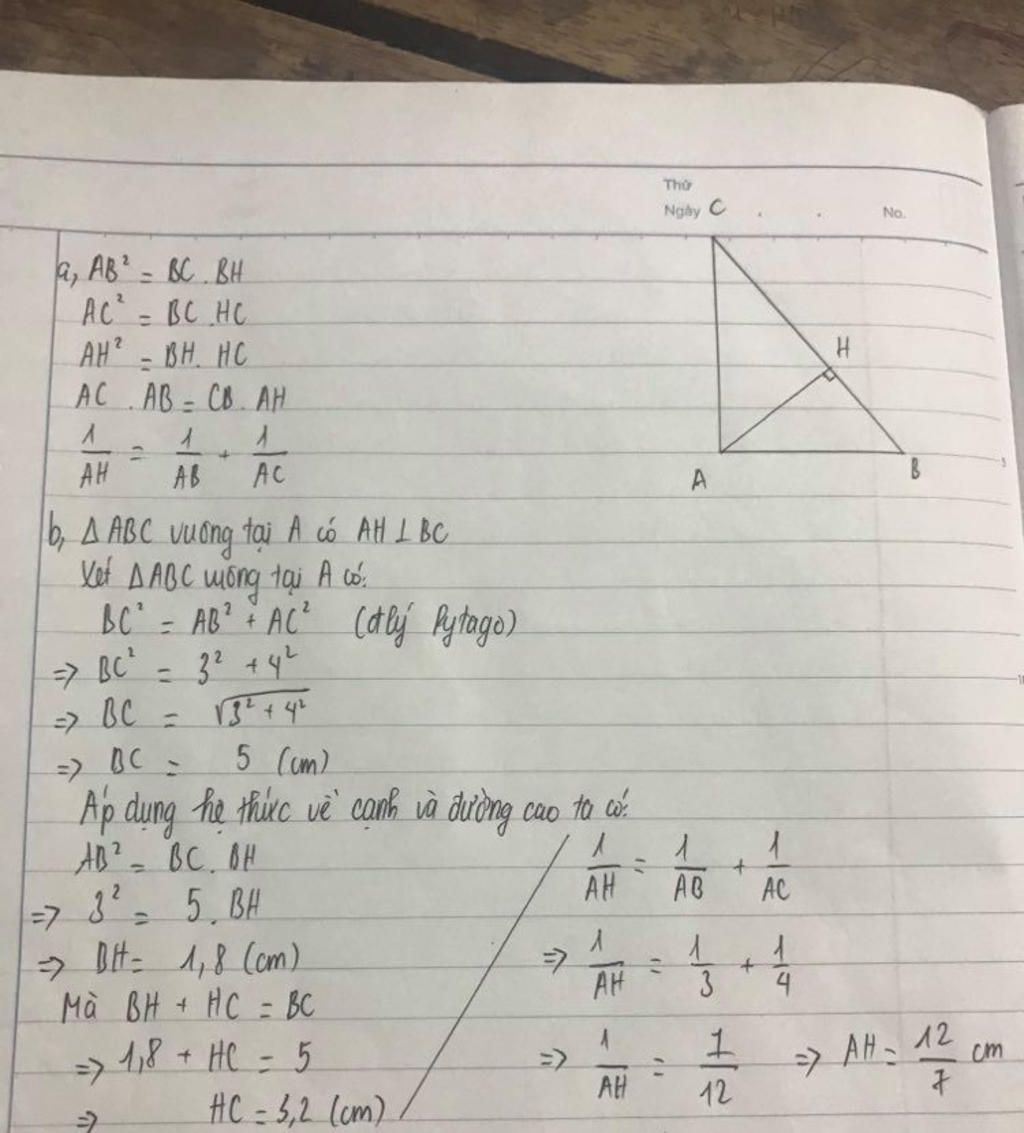 Thứ
Ngày . . No.
C
a, AB² = BC . BH
AC² = BC . HC
AH² = BH . HC
AC . AB = CB . AH
1/AH = 1/AB + 1/AC
H
A
B
5
b, Δ ABC vuông tại A có AH ⊥ BC
Xét Δ ABC vuông tại A có:
BC² = AB² + AC² (đlý Pytago)
=> BC² = 3² + 4²
=> BC = √3² + 4²
=> BC = 5 (cm)
10
Áp dụng hệ thức về cạnh và đường cao ta có:
AB² = BC . BH
=> 3² = 5 . BH
=> BH = 1,8 (cm)
Mà BH + HC = BC
=> 1,8 + HC = 5
=> HC = 3,2 (cm)
1/AH = 1/AB + 1/AC
=> 1/AH = 1/3 + 1/4
=> 1/AH = 7/12 => AH = 12/7 cm